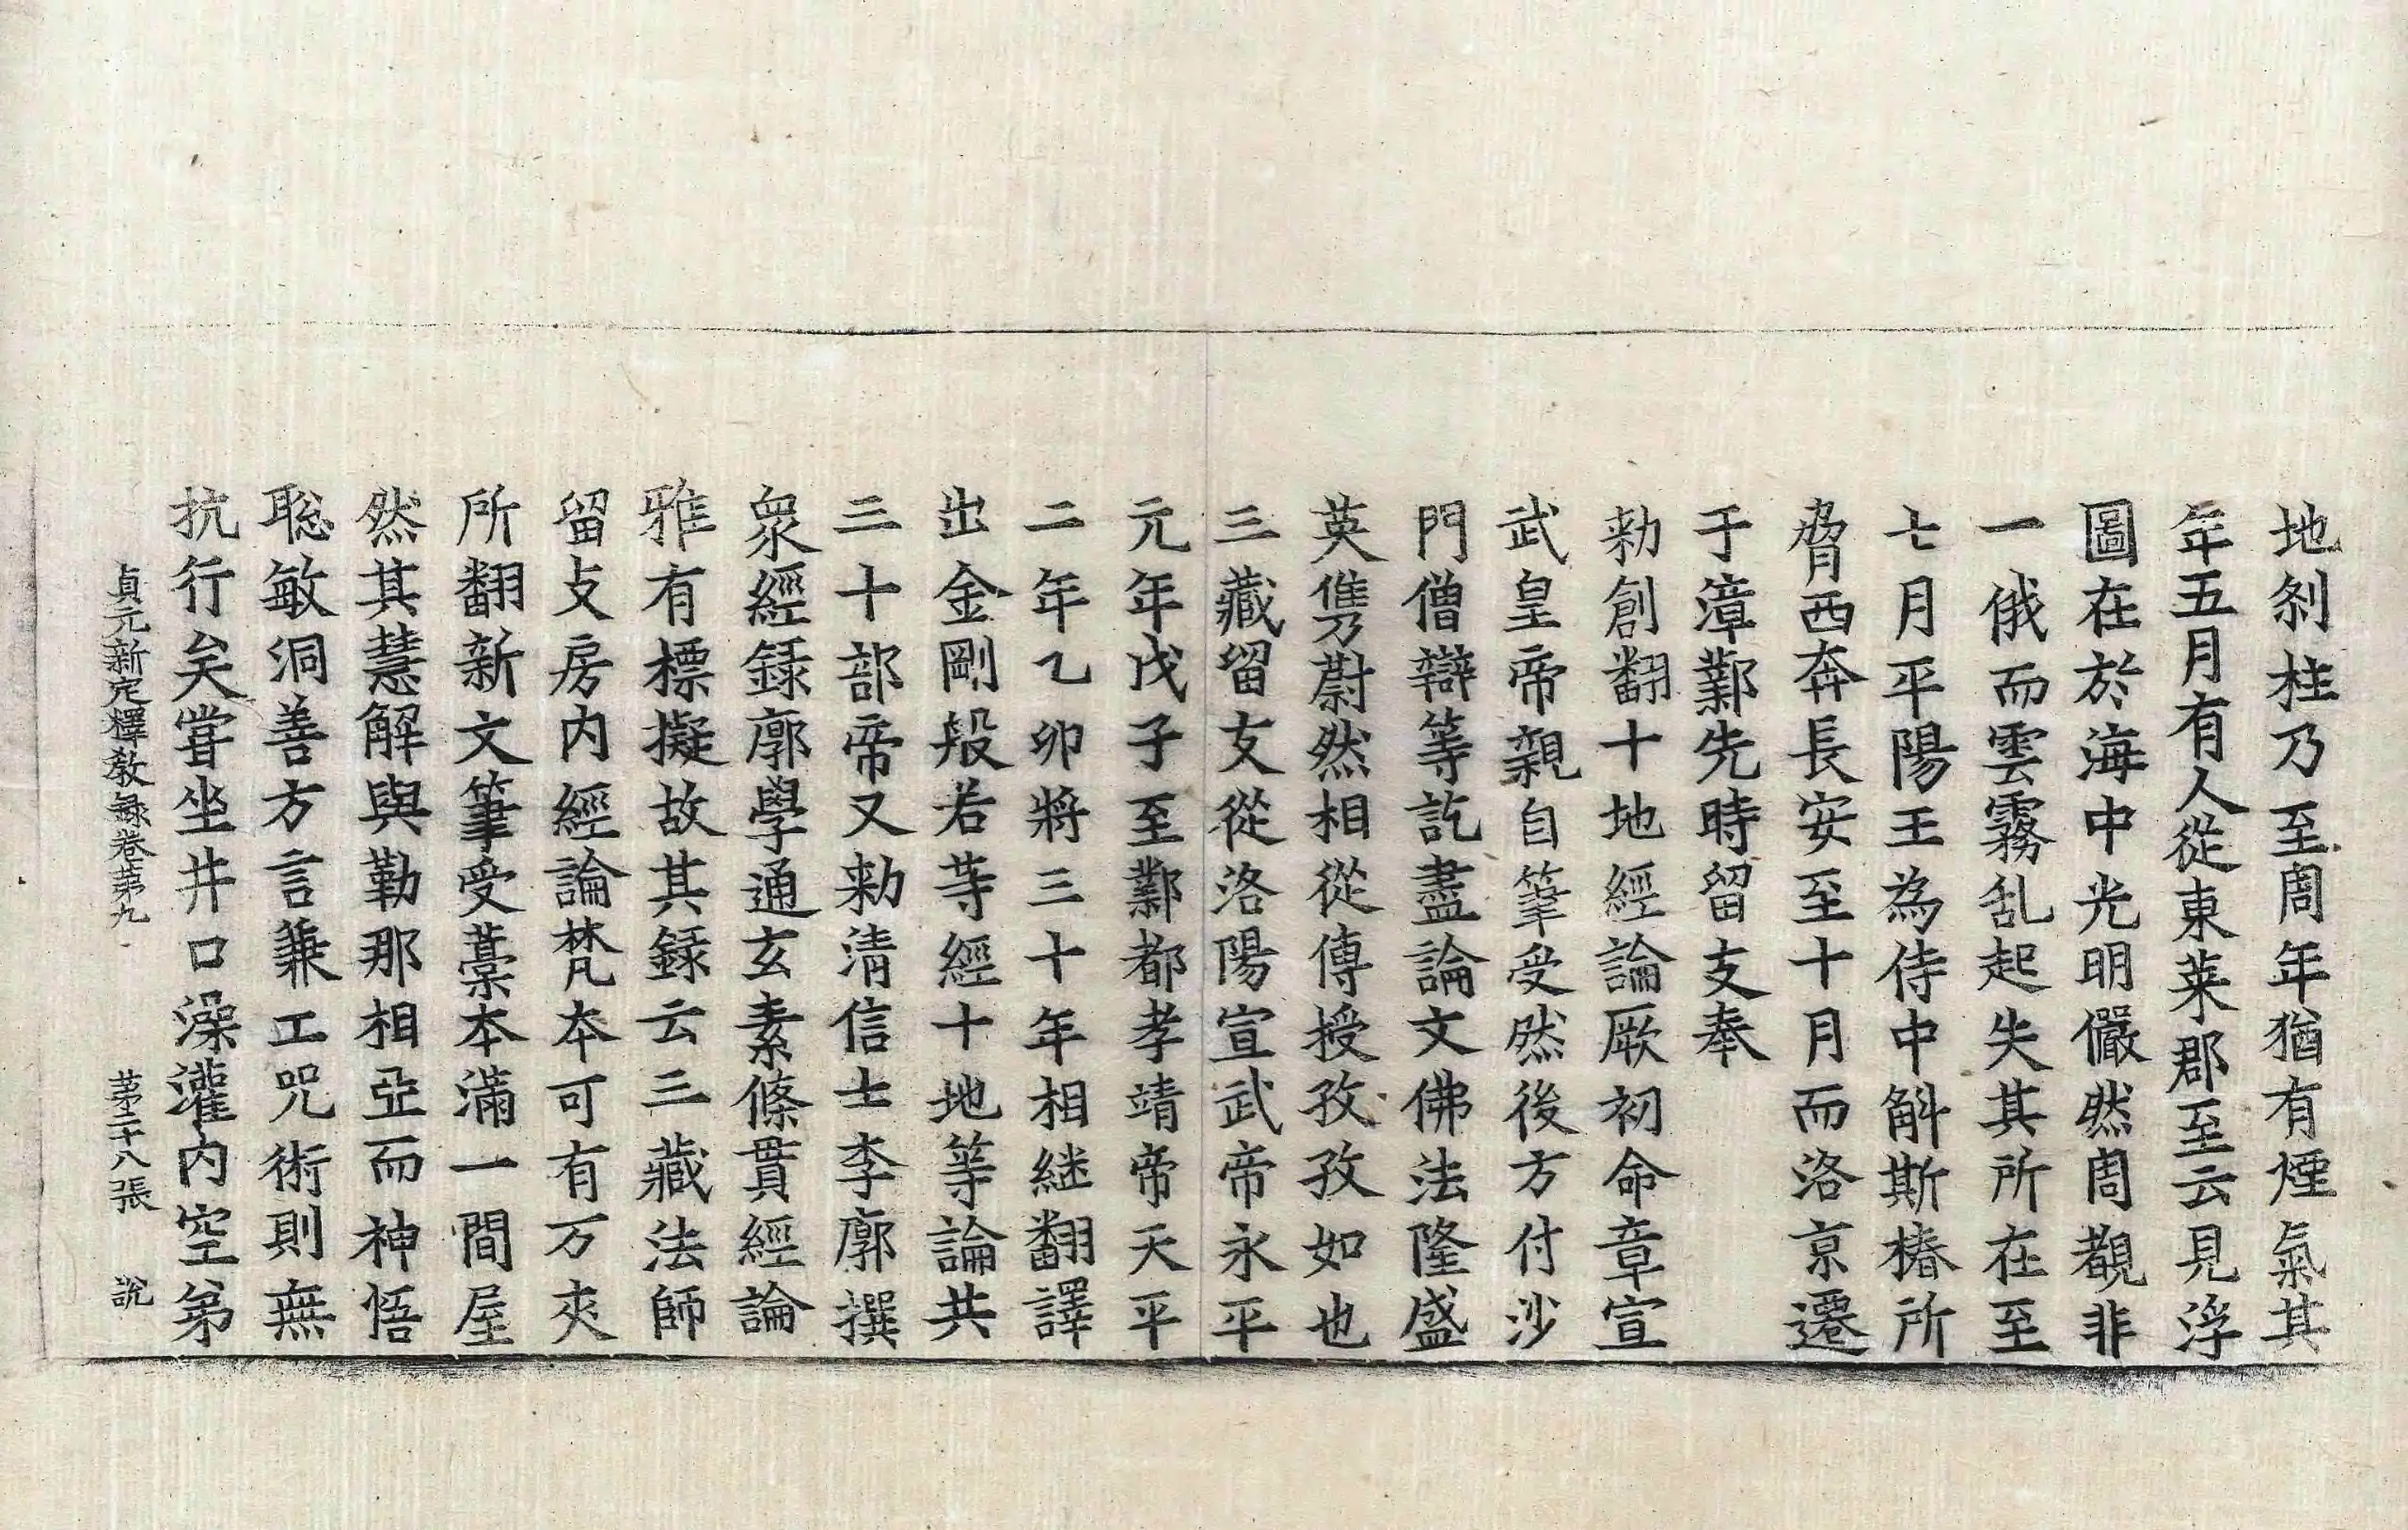 地刹柱乃至周年猶有煙氣其
年五月有人從東萊郡至云見浮
圖在於海中光明儼然周觀非
一俄而雲霧乱起失其所在至
七月平陽王為侍中斛斯椿所
脅西奔長安至十月而洛京遷
于漳鄴先時留支奉
勑創翻十地經論厥初命章宣
武皇帝親自筆受然後方付沙
門僧辯等訖盡論文佛法隆盛
英儁蔚然相從傳授孜孜如也
三藏留支從洛陽宣武帝永平
元年戊子至鄴都孝靖帝天平
二年乙卯將三十年相継翻譯
出金剛般若等經十地等論共
三十部帝又勑清信士李廓撰
衆經録廓學通玄素條貫經論
雅有標擬故其録云三藏法師
留支房内經論梵本可有万夾
所翻新文筆受藁本滿一間屋
然其慧解與勤那相亞而神悟
聡敏洞善方言兼工呪術則無
抗行矣甞坐井口澡灌内空弟
貞元新定釋教録卷苐九 苐二十八張 說